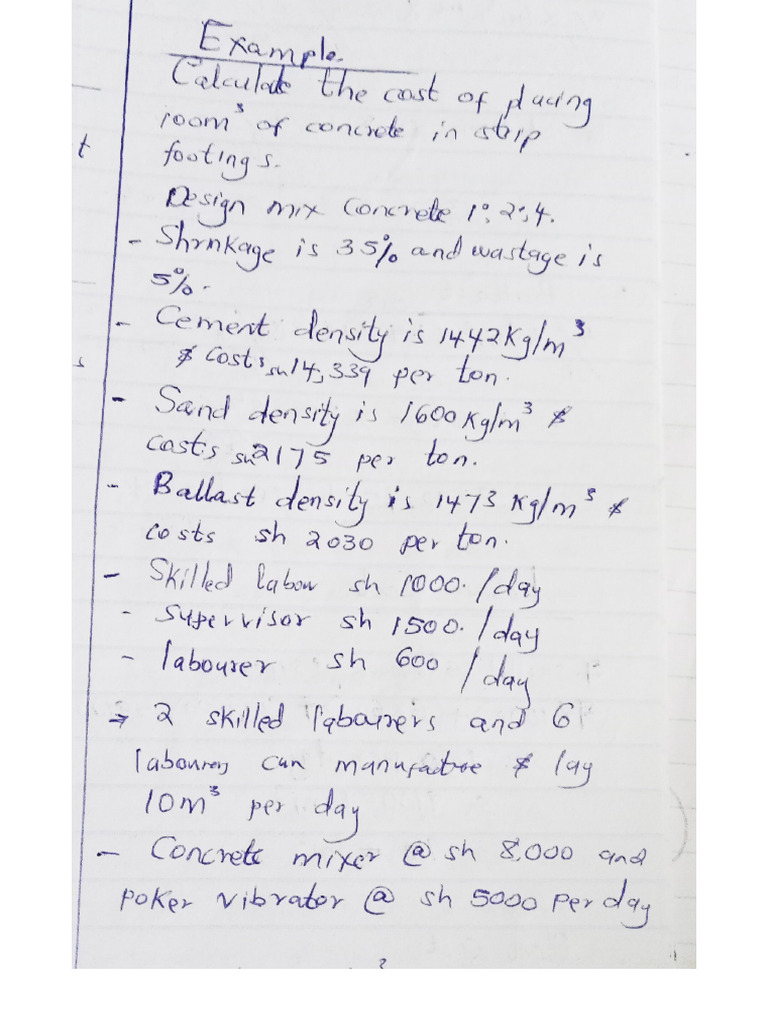 Example.
Calculate the cost of placing
100m³ of concrete in strip
t
footings.
Design mix concrete 1:2:4.
- Shrnkage is 35% and wastage is
5%.
- Cement density is 1442Kg/m³
s
& costs sh14,339 per ton.
- Sand density is 1600Kg/m³ &
costs sh2175 per ton.
- Ballast density is 1473 Kg/m³ &
costs sh 2030 per ton.
- Skilled labour sh 1000./day
- Supervisor sh 1500./day
- labourer sh 600 /day
→ 2 skilled labourers and 6
labourers can manufacture & lay
10m³ per day
- Concrete mixer @ sh 8,000 and
poker vibrator @ sh 5000 per day